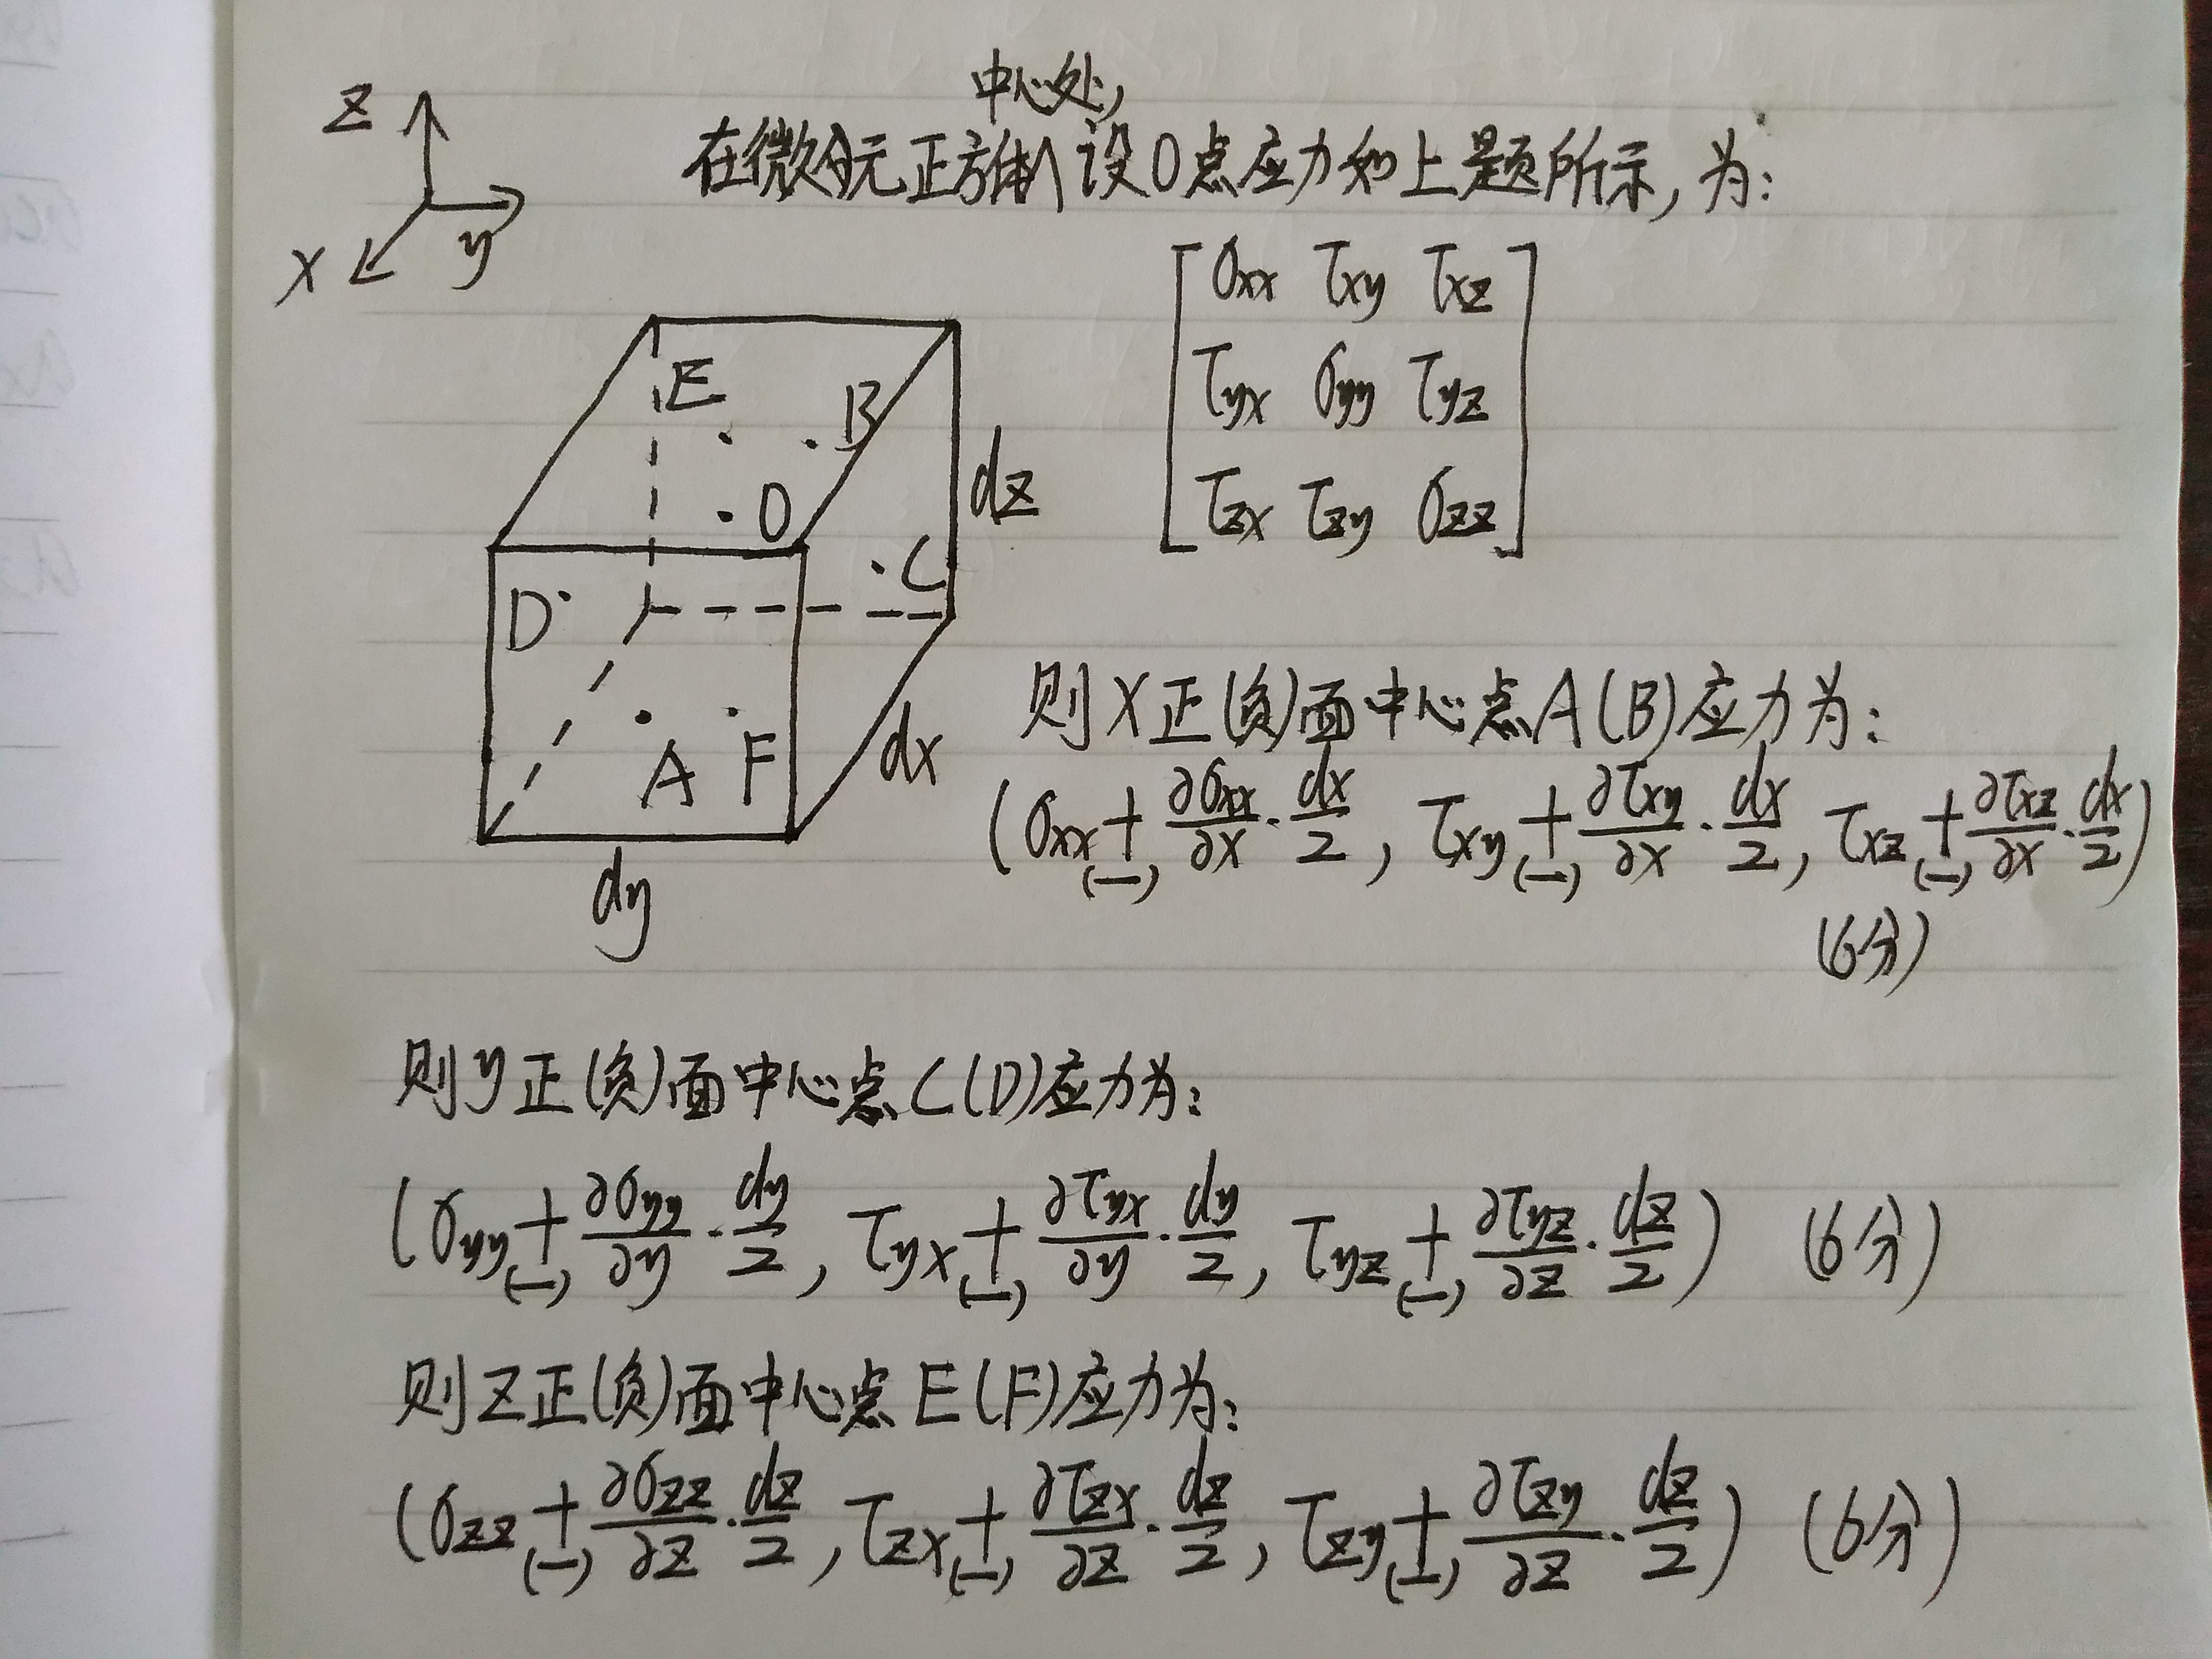 中心处,
在微分元正方体∧设O点应力如上题所示,为:
z
y
x
[σxx τxy τxz
τyx σyy τyz
τzx τzy σzz]
E
B
O
dz
C
D
A
F
dx
dy
则X正(负)面中心点A(B)应力为:
(σxx+(−) ∂σxx/∂x · dx/2, τxy+(−) ∂τxy/∂x · dx/2, τxz+(−) ∂τxz/∂x · dx/2)
(6分)
则y正(负)面中心点C(D)应力为:
(σyy+(−) ∂σyy/∂y · dy/2, τyx+(−) ∂τyx/∂y · dy/2, τyz+(−) ∂τyz/∂z · dz/2) (6分)
则Z正(负)面中心点E(F)应力为:
(σzz+(−) ∂σzz/∂z · dz/2, τzx+(−) ∂τzx/∂z · dz/2, τzy+(−) ∂τzy/∂z · dz/2) (6分)